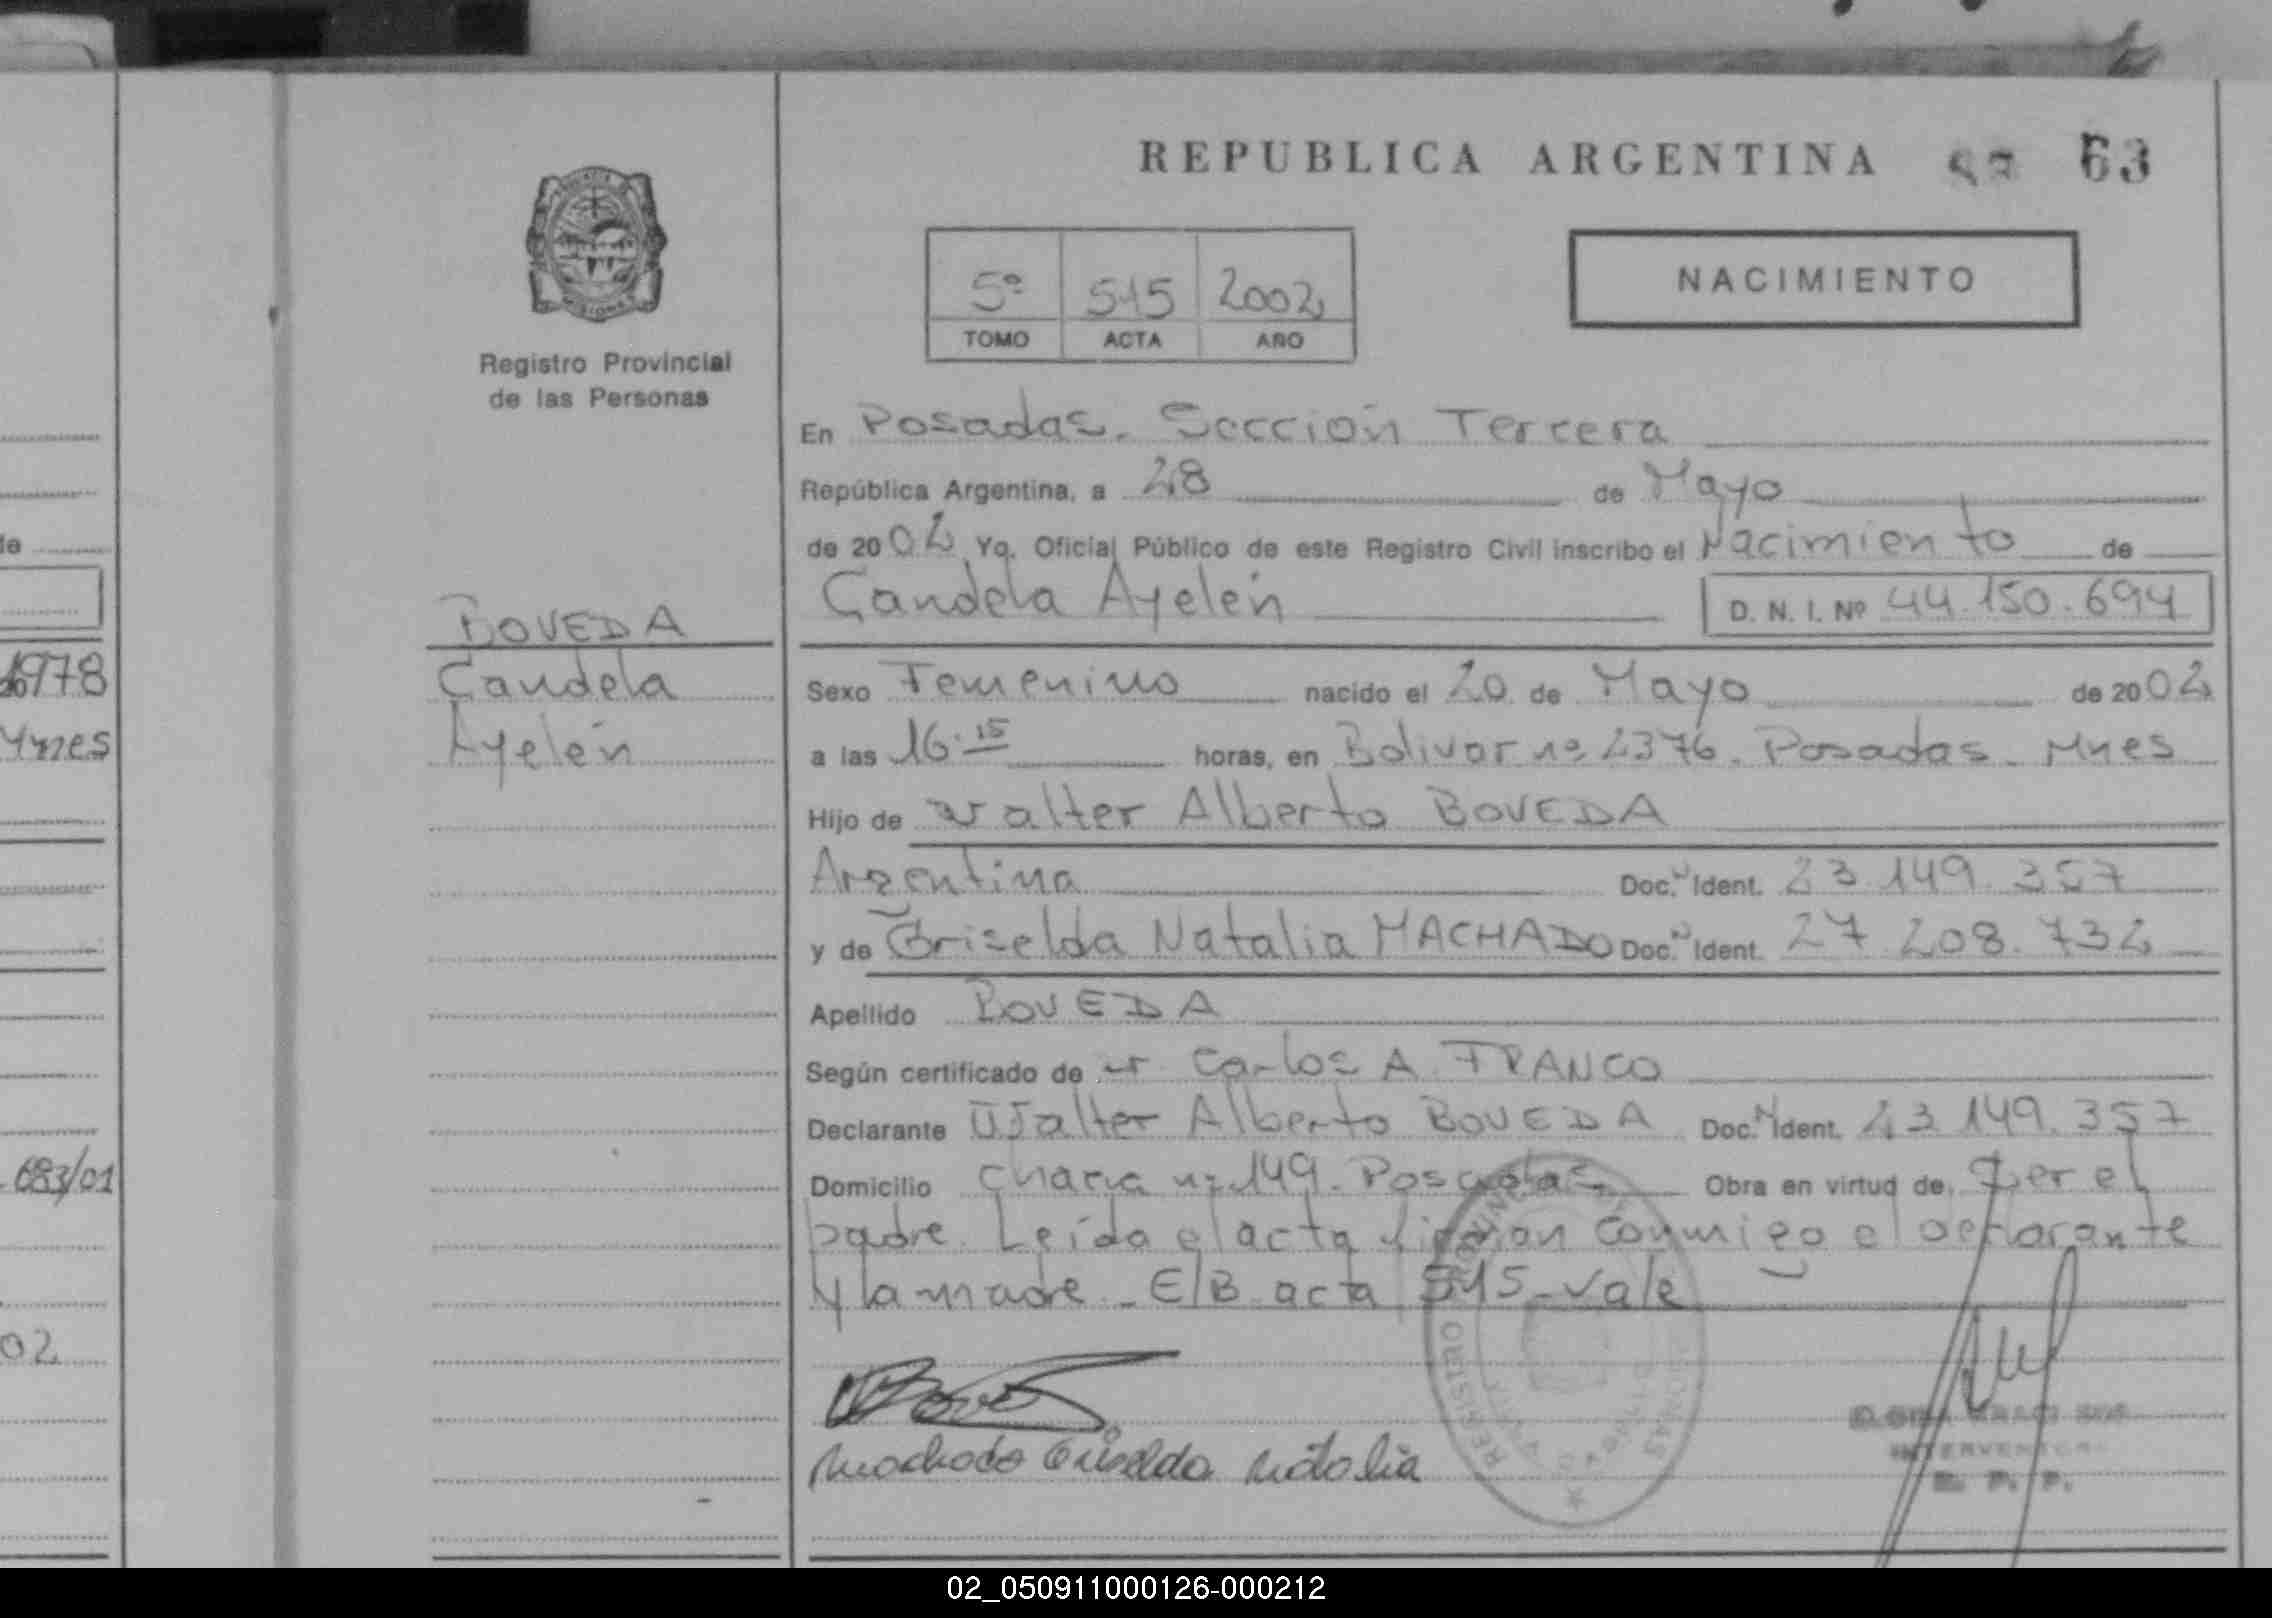 REPUBLICA ARGENTINA 63
NACIMIENTO
5º 515 2002
TOMO ACTA AÑO
PROVINCIA DE MISIONES
Registro Provincial
de las Personas
En Posadas. Sección Tercera
República Argentina, a 28 de Mayo
de 2002 Yo. Oficial Público de este Registro Civil inscribo el Nacimiento de
Candela Ayelén D. N. I. Nº 44.150.694
BOVEDA
Candela
Ayelén
Sexo Femenino nacido el 20 de Mayo de 2002
a las 16.15 horas, en Bolivar nº 2376. Posadas. Mnes
Hijo de Walter Alberto BOVEDA
Argentina Doc. Ident. 23.149.357
y de Griselda Natalia MACHADO Doc. Ident. 27.208.732
Apellido BOVEDA
Según certificado de Carlos A. FRANCO
Declarante Walter Alberto BOVEDA Doc. Ident. 23.149.357
Domicilio Chacra nº 149. Posadas Obra en virtud de Ser el
padre. Leída el acta firman conmigo el declarante
y la madre. E/B acta 515 - Vale
Machado Griselda Natalia
REGISTRO
INTERVENTORA
R. P. P.
de
1978
Mnes
683/01
02
02_050911000126-000212